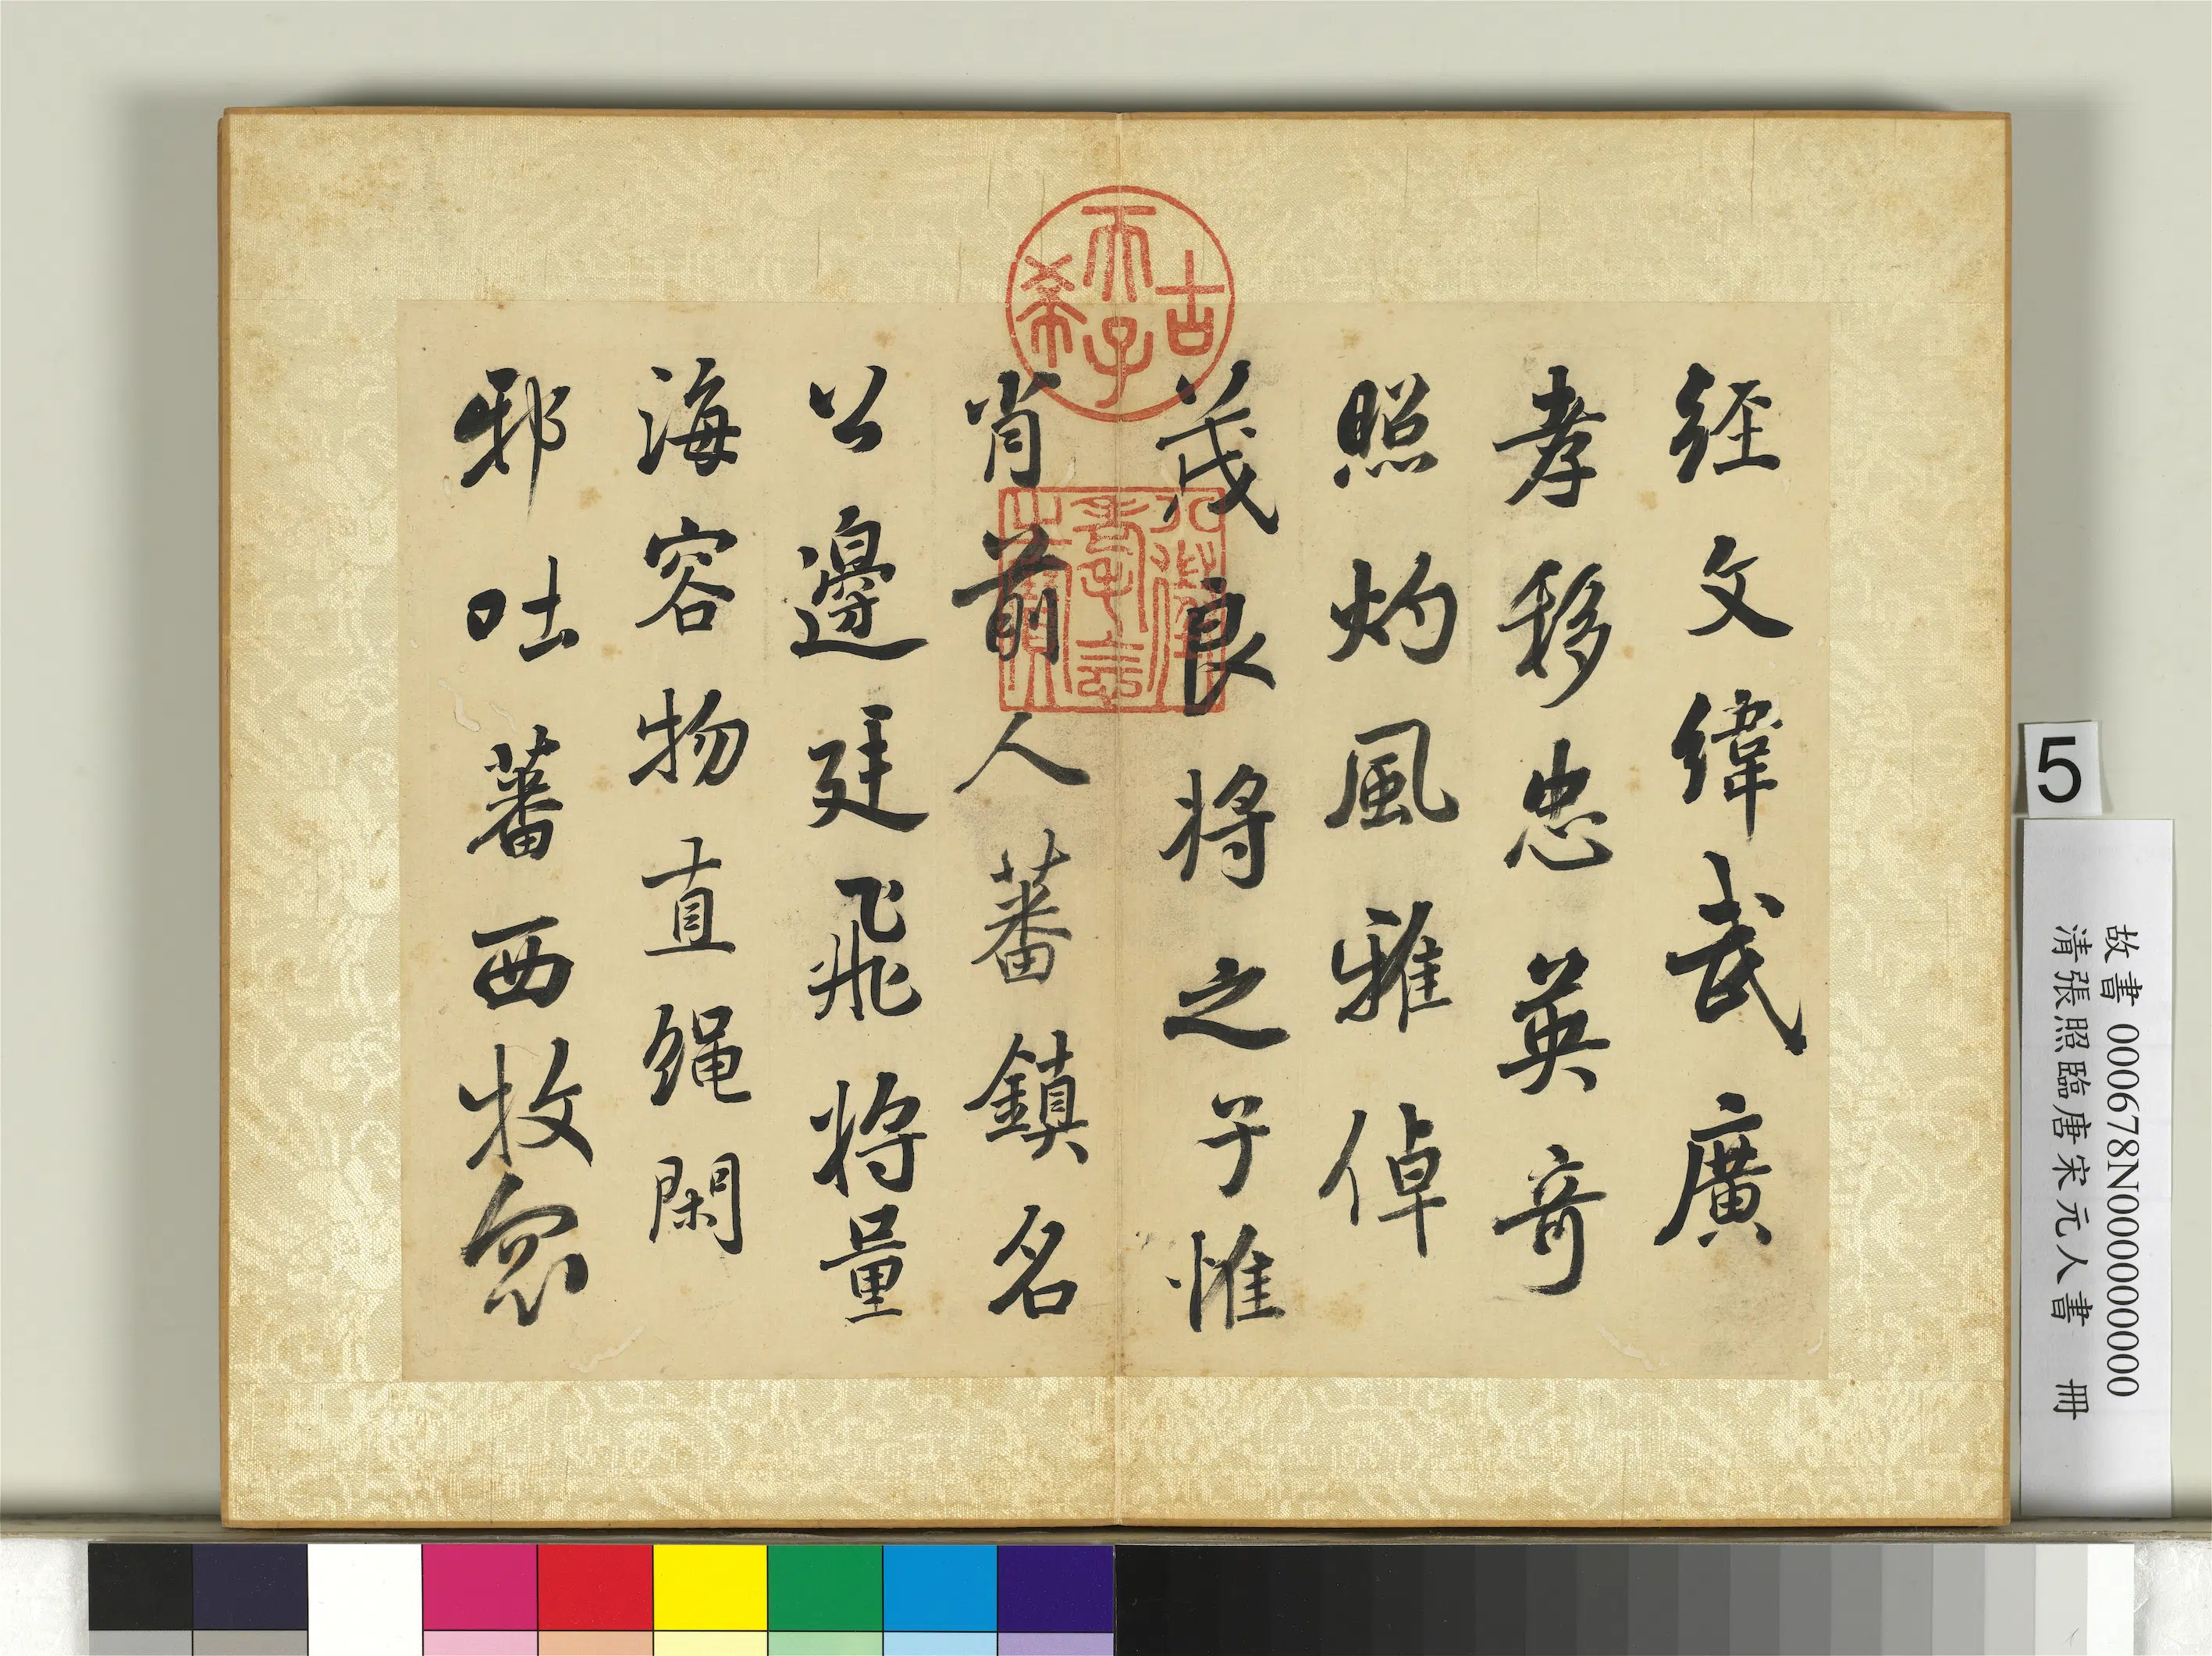 經文緯武廣
孝移忠英奇
照灼風雅倬
茂良將之子惟
肖前人蕃鎮名
公邊廷飛將量
海容物直繩閑
邪吐蕃西牧
古希天子
八徵耄念之寶
5
故書 000678N000000000
清張照臨唐宋元人書 冊